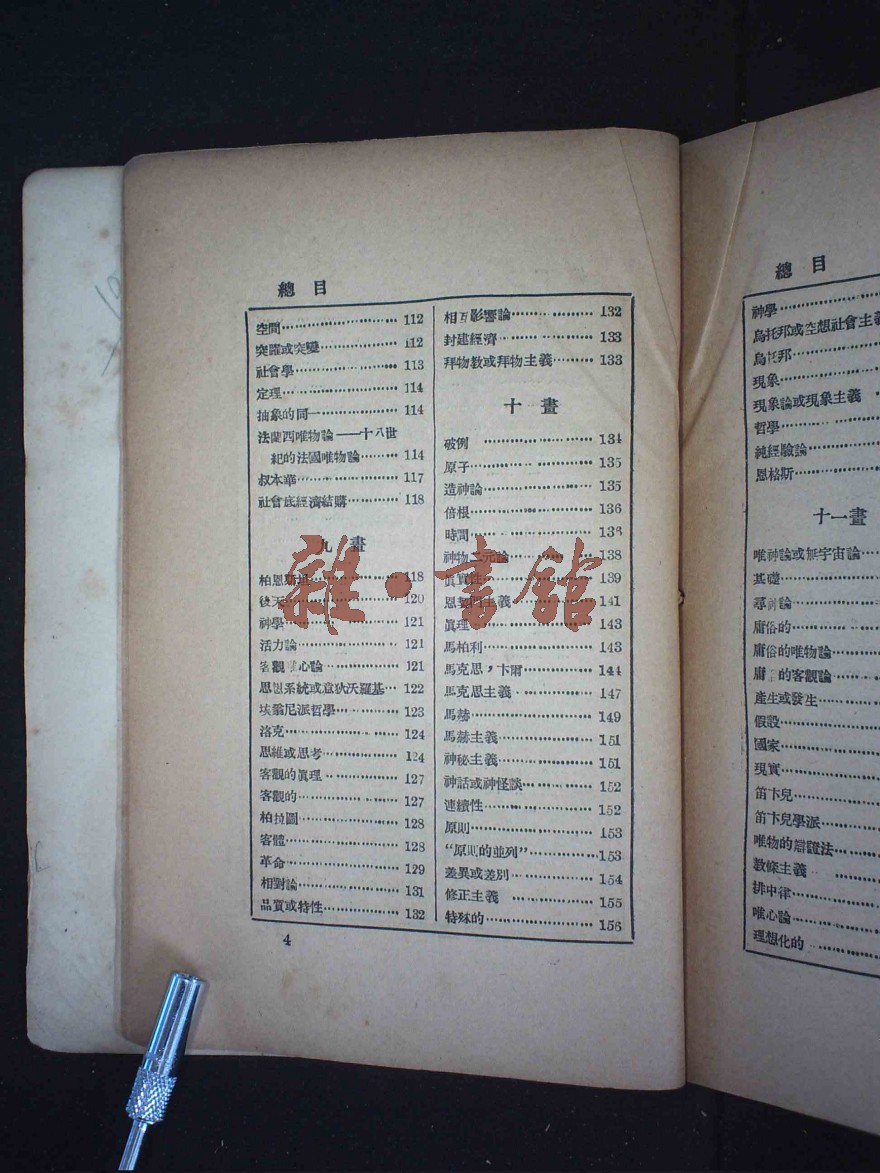 總目
空間 112
突躍或突變 112
社會學 113
定理 114
抽象的同一 114
法蘭西唯物論——十八世
紀的法國唯物論 114
叔本華 117
社會底經濟結購 118
九畫
柏恩斯坦 118
後天 120
神學 121
活力論 121
客觀唯心論 121
思想系統或意狄沃羅基 122
埃翁尼派哲學 123
洛克 124
思維或思考 124
客觀的眞理 127
客觀的 127
柏拉圖 128
客體 128
革命 129
相對論 131
品質或特性 132
相互影響論 132
封建經濟 133
拜物教或拜物主義 133
十畫
破例 134
原子 135
造神論 135
倍根 136
時間 138
神物二元論 138
眞實性 139
恩 主義 141
眞理 143
馬柏利 143
馬克思，卞爾 144
馬克思主義 147
馬赫 149
馬赫主義 151
神祕主義 151
神話或神怪談 152
連續性 152
原則 153
“原則的並列” 153
差異或差別 154
修正主義 155
特殊的 156
4
雜·書館
總目
神學
烏托邦或空想社會主義
烏托邦
現象
現象論或現象主義
哲學
純經驗論
恩格斯
十一畫
唯神論或無宇宙論
基礎
尋神論
庸俗的
庸俗的唯物論
庸 的客觀論
產生或發生
假設
國家
現實
笛卞兒
笛卞兒學派
唯物的辯證法
教條主義
排中律
唯心論
理想化的